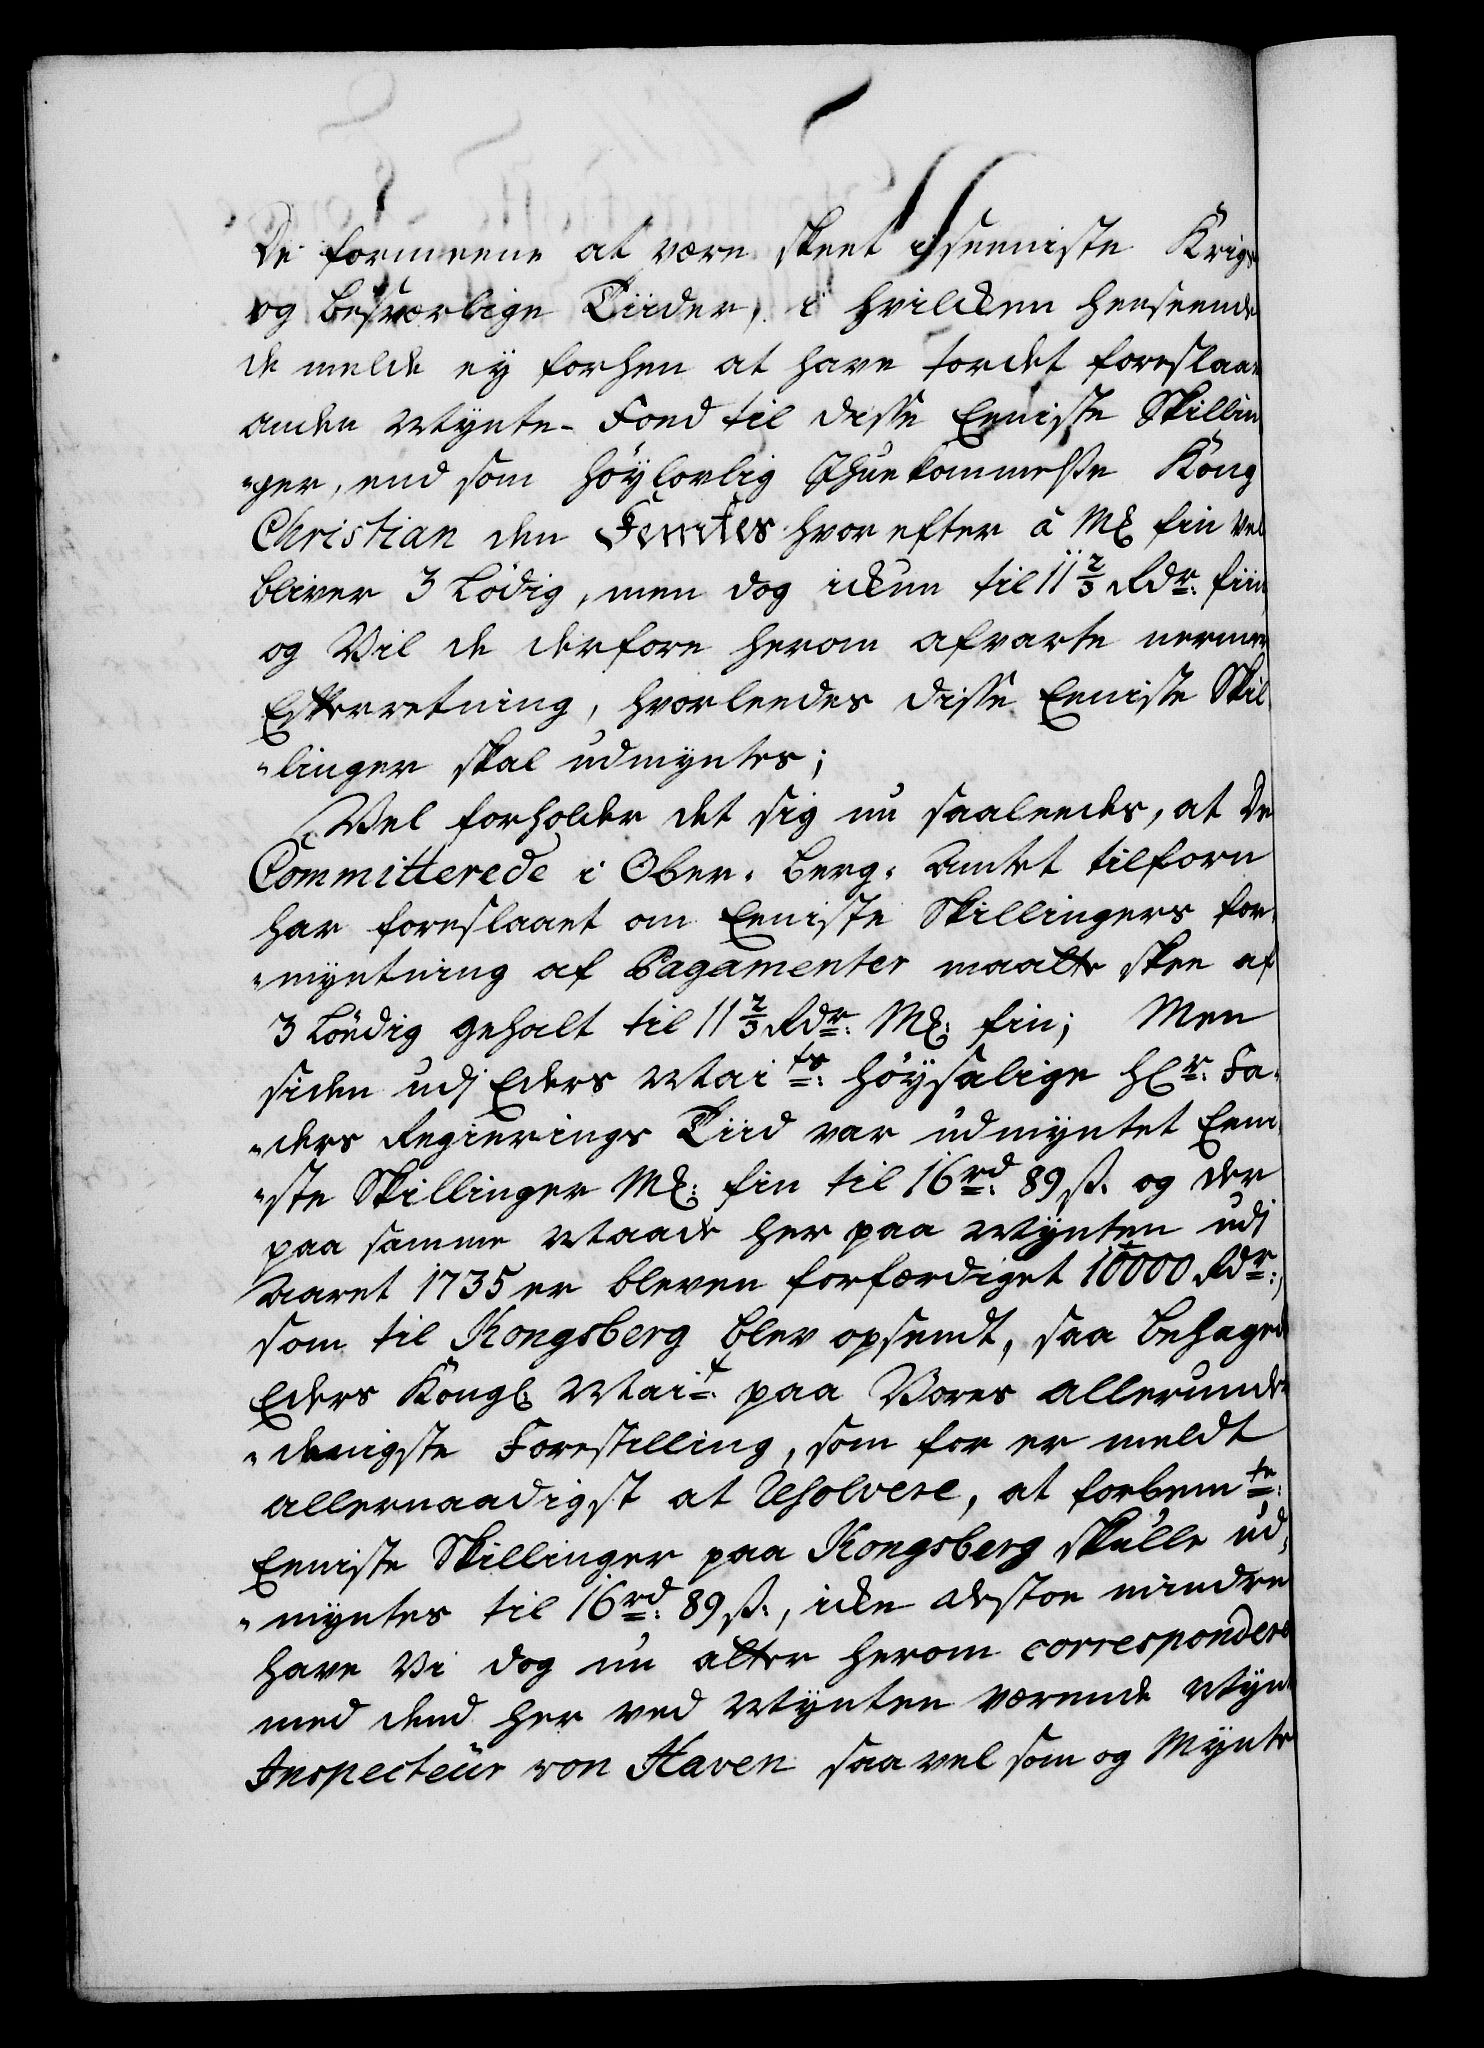 De formeene at være skeet i seeniste Krigs
og besværlige Tiider, i hvilcken henseende
de melde ey forhen at have tordet foreslaae
anden Mynte-Fond til disse Eeniste Skillin
"ger, end som höylovlig Ihukommelse Kong
Christian den Femtes hvorefter â Mk fin vel
bliver 3 Lödig, men dog ickun til 11 2/3 Rdr: fiin
og Vil de derfore herom afvarte nermere
Efterretning, hvorleedes disse Eeniste Skil
"linger skal udmyntes;
Vel forholder det sig nu saaleedes, at De
Committerede i Ober-Berg-Amtet tilforn
har foreslaaet om Eeniste Skillingers for-
"myntning af Pagamenter maatte skee af
3 Löedig gehalt til 11 2/3 Rdr: Mk: fin; Men
siden udj Eders Maits: höysalige Hr: Fa-
"ders Regierings Tiid var udmyntet Eeni-
"ste Skillinger Mk: fin til 16rd: 89 ß. og der
paa samme Maade her paa Mynten udj
Aaret 1735 er bleven forfærdiget 10000 Rdr:,
som til Kongsberg blev opsendt, saa behaged
Eders Kongl: Mait: paa Vores allerunder
"danigste Forestilling, som for er meldt
allernaadigst at Resolvere, at forbemte:
Eeniste Skillinger paa Kongsberg skulle ud-
"myntes til 16rd: 89 ß., icke destoe mindre
have Vi dog nu atter herom correspondere
med dend her ved Mynten værende Mynt
Inspecteur von Haven saa vel som og Mynte